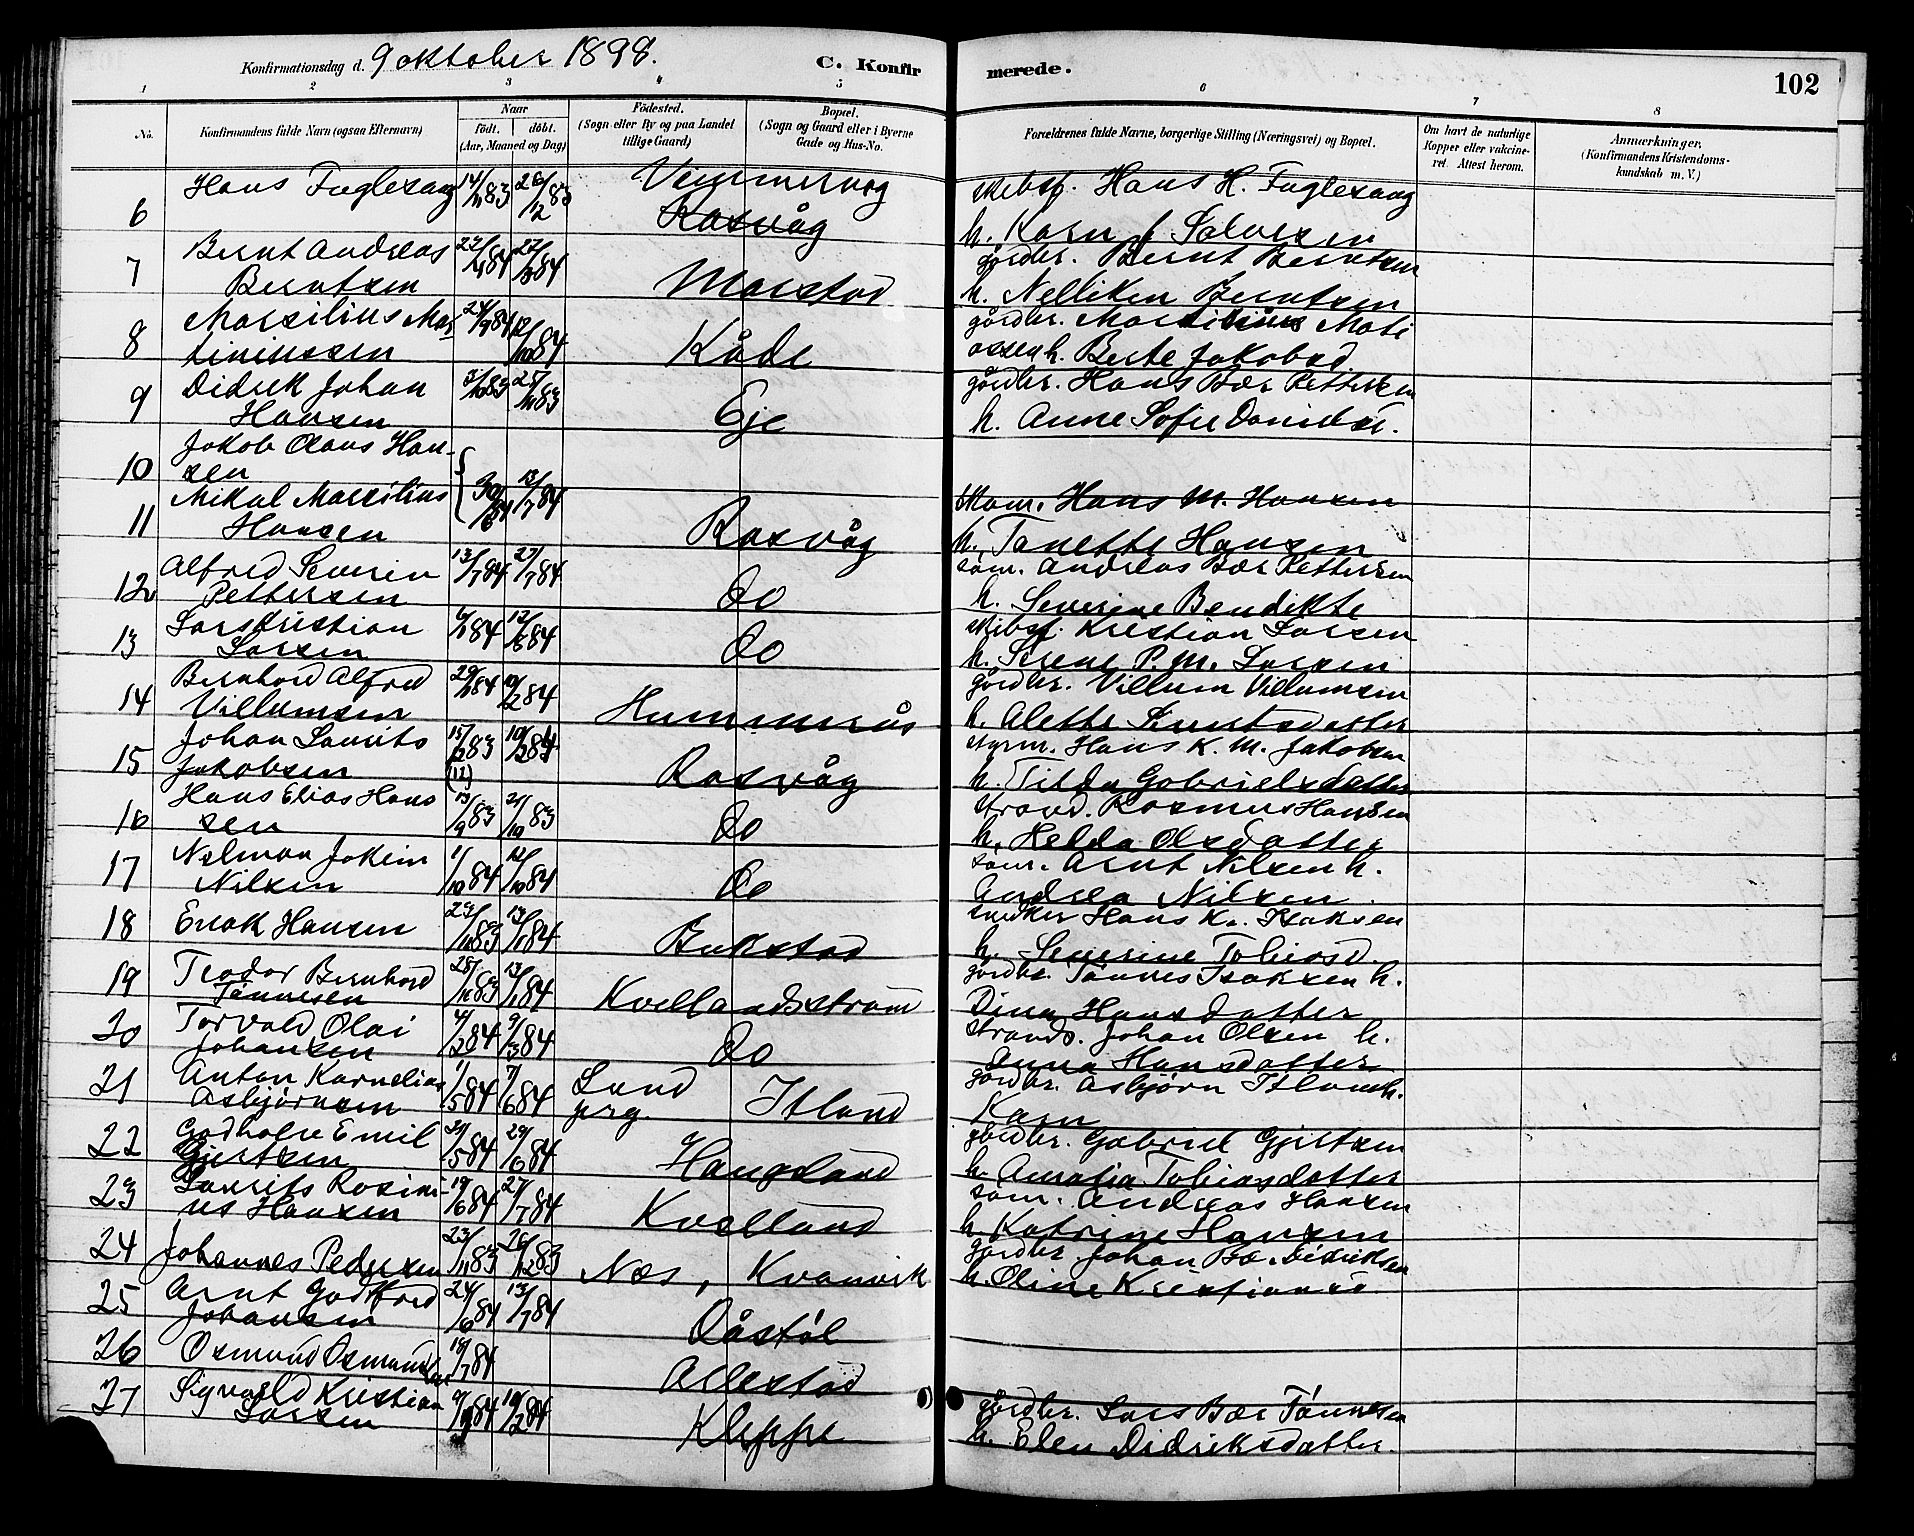 Konfirmationsdag d. 9 oktober 1898. C. Konfirmerede. 102
1 2 3 4 5 6 7 8
No. Konfirmandens fulde Navn (ogsaa Efternavn) Naar födt. döbt. (Aar, Maaned og Dag) Födested. (Sogn eller By og paa Landet tillige Gaard) Bopæl. (Sogn og Gaard eller i Byerne Gade og Hus-No. Forældrenes fulde Navne, borgerlige Stilling (Næringsvei) og Bopæl. Om havt de naturlige Kopper eller vakcineret. Attest herom. Anmærkninger. (Konfirmandens Kristendomskundskab m. V.)
6 Hans Fuglesang 83 83 Rasvåg skibsf. Hans H. Fuglesang
h. Karn J Salvesen
7 Bernt Andreas
Berntsen 84 84 Marstad gårdbr. Bernt Berntsen
h. Nelliken Berntsen
8 Marsilius Mar
tiniussen 24/9 84 12/10 84 Kåde gårdbr.
h. Berte Jakobsd
9 Didrik Johan
Hansen 83 25/11 83 Eje gårdbr. Hans Bær Pettersen
h. Anne Sofie
10 Jakob Olaus Han-
sen
11 Mikal Marsilius
Hansen 30/6 84 13/7 84 Rasvåg Hans M. Hansen
h. Tanette Hansen
12 Alfred Severin
Pettersen 13/7 84 27/7 84 Do söm. Andreas Bær Pettersen
h. Severine Bendikte
13 Lars Kristian
Larsen 84 84 Do skibsf. Kristian Larsen
h. Serene P. M. Larsen
14 Bernhard Alfred
Villumsen 29/1 84 10/2 84 gårdbr. Villum Villumsen
h. Alette
15 Johan Laurits
Jakobsen 15/12 83 (12) 10/2 84 Rasvåg styrm. Hans K. M. Jakobsen
h. Tilda Gabrielsdatter
16 Hans Elias Hans
sen 13/9 83 21/10 83 Do strand. Rasmus Hansen
h. Helda Olsdatter
17 Nelman Jokim
Nilsen 1/10 84 12/10 84 Do söm. Arnt Nilsen h.
Andrea Nilsen
18 Enok Hansen 83 13/1 84 Bukstad snedker Hans K. Isaksen
h. Severine Tobiasd.
19 Teodor Bernhard
Tönnesen 83 13/1 84 Kvellandsström gårdbr. Tönnes Isaksen h.
Dina Hansdatter
20 Torvald Olai
Johansen 4/2 84 9/3 84 Do strands. Johan Olsen h.
Anna Hansdatter
21 Anton Kornelius
Asbjörnsen 1/5 84 7/6 84 Lund prg. Itland gårdbr. Asbjörn Itland h.
Karn
22 Emil
Gjertsen 21/5 84 29/6 84 Haugland gårdbr. Gabriel Gjertsen
h. Amalia Tobiasdatter
23 Laurits Rosini-
us Hansen 19/6 84 27/7 84 Kvelland söm. Andreas Hansen
h. Katrine Hansen
24 Johannes Pedersen 23/11 83 26/12 83 Næs, Kvanvik gårdbr. Johan Bæ. Didriksen
h. Oline Kristiansd.
25 Arnt Godtfred
Johansen 24/6 84 13/7 84
26 Osmund 18/7 84 Allestad
27 Sigvald Kristian
Larsen 84 10/2 84 Kleppe gårdbr. Lars Bær Tönnesen
h. Elen Didriksdatter.